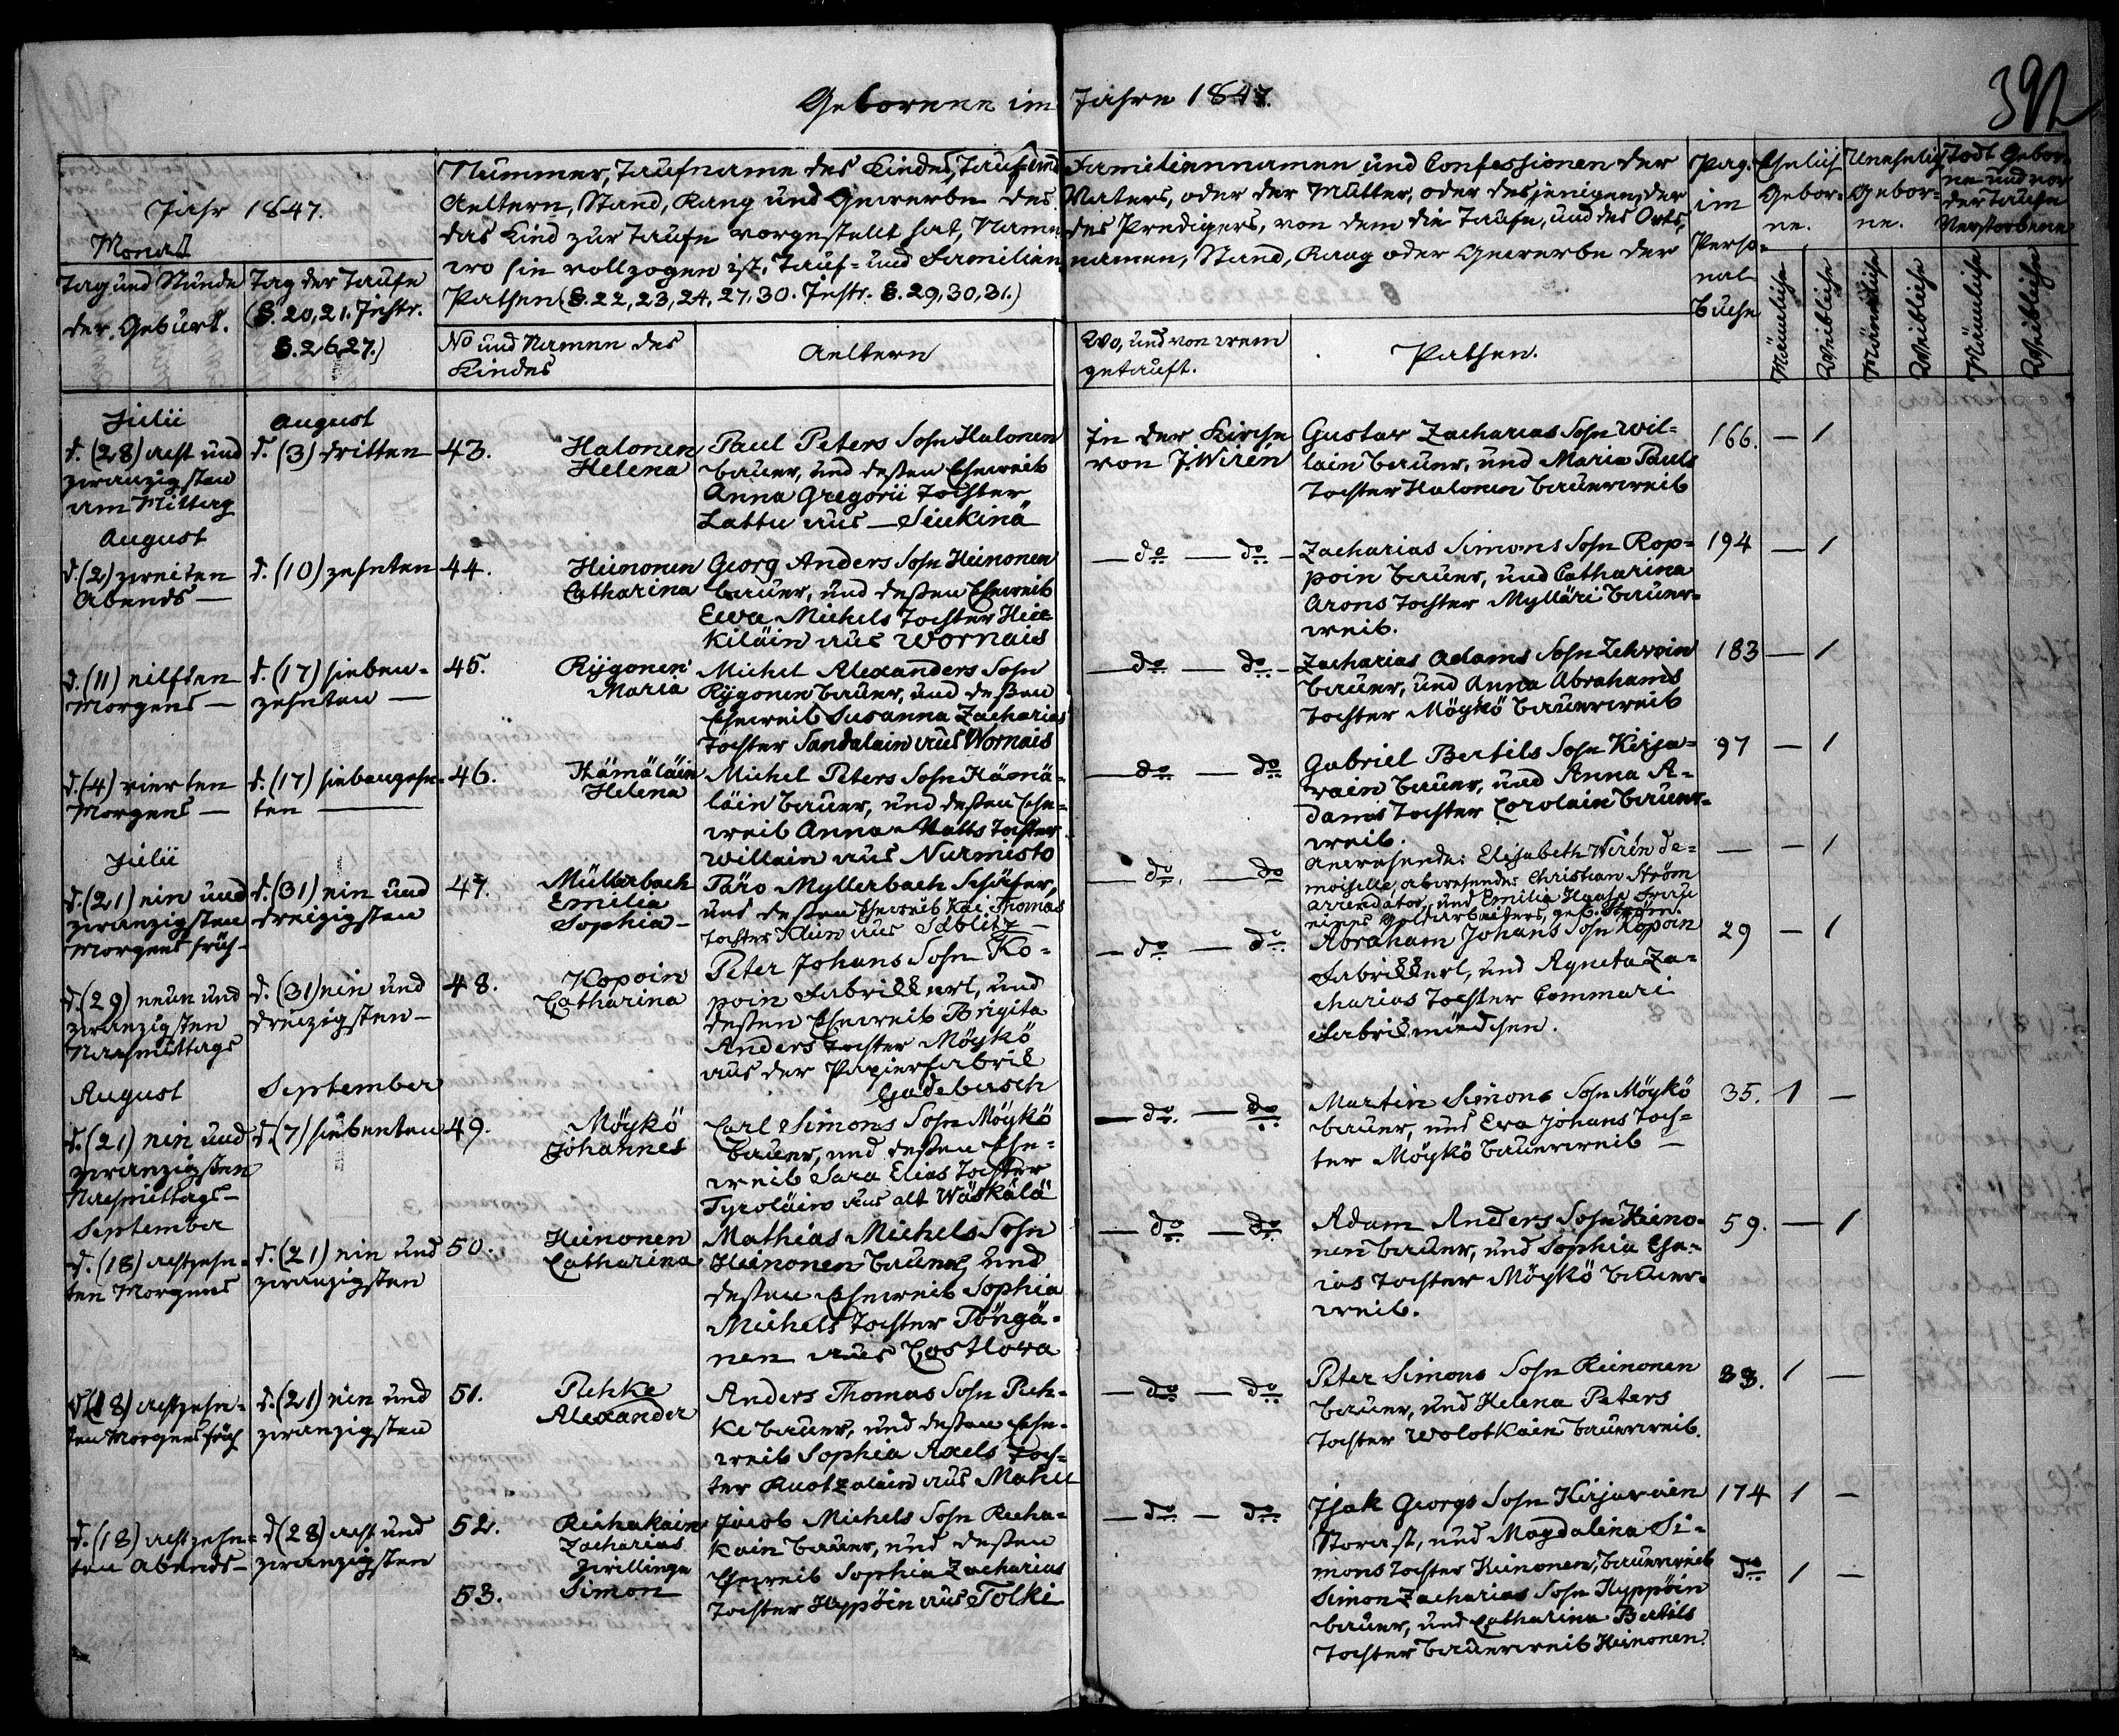 Geborene im Jahre 1847.
392
Jahr 1847.
Monat
Tag und Stunde
der Geburt.
Tag der Taufe
(§. 20, 21. Instr.
§. 26, 27.)
Nummer, Taufname des Kindes, Tauf- und Familiennamen und Confessionen der
Aeltern, Stand, Rang und Gewerbe des Vaters, oder der Mutter, oder desjenigen, der
das Kind zur Taufe vorgestellt hat, Name des Predigers, von dem die Taufe, und des Orts,
wo sie vollzogen ist, Tauf- und Familiennamen, Stand, Rang oder Gewerbe der
Pathen (§. 22, 23, 24, 27, 30. Instr. §. 29, 30, 31.)
No und Namen des
Kindes
Aeltern
Wo, und von wem
getauft.
Pathen.
Pag.
im
Perso-
nal
Buche
Ehelich
Gebor-
ne.
Unehelich
Gebor-
ne.
Todt Gebor-
ne und vor
der Taufe
Verstorbene
Männliche
Weibliche
Männliche
Weibliche
Männliche
Weibliche
Julii
d. (28) acht und
zwanzigsten
am Mittag
August
d. (3) dritten
43.
Halonen
Helena
Paul Peters Sohn Halonen
bauer, und deßen Eheweib
Anna Gregorii Tochter
Lattu aus — Siukinä
In der Kirche
von J. Wirén
Gustav Zacharias Sohn Wil-
lain bauer, und Maria Pauls
Tochter Halonen bauerweib
166. — 1
August
d. (2) zweiten
Abends —
d. (10) zehnten
44.
Heinonen
Catharina
Georg Anders Sohn Heinonen
bauer, und deßen Eheweib
Ewa Michels Tochter Hie
kiläin aus Wornais
— do — do —
Zacharias Simons Sohn Rop-
poin bauer, und Catharina
Arons Tochter Mylläri bauer-
weib.
194 — 1
d. (11) eilften
Morgens —
d. (17) sieben-
zehnten —
45.
Rÿgonen
Maria
Michel Alexanders Sohn
Rÿgonen bauer, und deßen
Eheweib Susanna Zacharias
Tochter Sandalain aus Wornais
— do — do —
Zacharias Adams Sohn Lehvoin
bauer, und Anna Abrahams
Tochter Möykö bauerweib
183 — 1
d. (4) vierten
Morgens —
d. (17) siebenzehn-
ten —
46.
Hämäläin
Helena
Michel Peters Sohn Hämä-
läin bauer, und deßen Ehe-
weib Anna Matts Tochter
Willain aus Nurmisto
— do — do
Gabriel Bertils Sohn Kirja-
vain bauer, und Anna A-
dams Tochter Corolain bauer-
weib.
97 — 1
Julii
d. (21) ein und
zwanzigsten
Morgens früh —
d. (31) ein und
dreizigsten
47.
Müllerbach
Emilia
Sophia —
Päro Myllerbach Schäfer,
und deßen Eheweib Kai Thomas
Tochter Klun aus Säblitz —
— do. — do
Anwesende: Elisabeth Wirén de-
moiselle, abwesende: Christian Ström
Arrendator, und Emilia Haase Frau
eines Goldarbeiters, geb. Ström.
— — 1
d. (29) neun und
zwanzigsten
Nachmittags
d. (31) ein und
dreizigsten —
48.
Kopoin
Catharina
Peter Johans Sohn Ko-
poin Fabrikkerl, und
deßen Eheweib Brigita
Anders Tochter Möykö
aus der Papierfabrik
Gadebusch
— do — do
Abraham Johans Sohn Kopoin
Fabrikkerl, und Agneta Za-
charias Tochter Commari
Fabrikmädchen.
29 — 1
August
d. (21) ein und
zwanzigsten
Nachmittags —
September
d. (7) siebenten
49.
Möykö
Johannes
Carl Simons Sohn Möykö
bauer, und deßen Ehe-
weib Sara Elias Tochter
Tyroläin aus alt Wäskälä
— do. — do
Martin Simons Sohn Möykö
bauer, und Eva Johans Toch-
ter Möykö bauerweib —
35. 1 —
September
d. (18) achtzehn-
ten Morgens
d. (21) ein und
zwanzigsten
50.
Heinonen
Catharina
Mathias Michels Sohn
Heinonen bauer, und
deßen Eheweib Sophia
Michels Tochter Pöngä-
nen aus Costlova
— do — do
Adam Anders Sohn Heino-
nen bauer, und Sophia Esa-
ias Tochter Möykö bauer-
weib.
59. — 1
d. (18) achtzehn-
ten Morgens früh
d. (21) ein und
zwanzigsten
51.
Pehke
Alexander
Anders Thomas Sohn Peh-
ke bauer, und deßen Ehe-
weib Sophia Axels Toch-
ter Ruotzalain aus Makle
— do — do
Peter Simons Sohn Reinonen
bauer, und Helena Peters
Tochter Wolotkain bauerweib.
33. 1 —
d. (18) achtzehn-
ten Abends —
d (28) acht und
zwanzigsten
52.
Reichakain
Zacharias
Zwillinge
53.
Simon
Jacob Michels Sohn Reicha-
kain bauer, und deßen
Eheweib Sophia Zacharias
Tochter Hyppöin aus Tolki
— do — do
Isak Georgs Sohn Kirjavain
Storast, und Magdalina Si-
mons Tochter Heinonen, bauerweib
Simon Zacharias Sohn Hyppöin
bauer, und Catharina Bertils
Tochter bauerweib Heinonen.
174 1 —
do 1 —